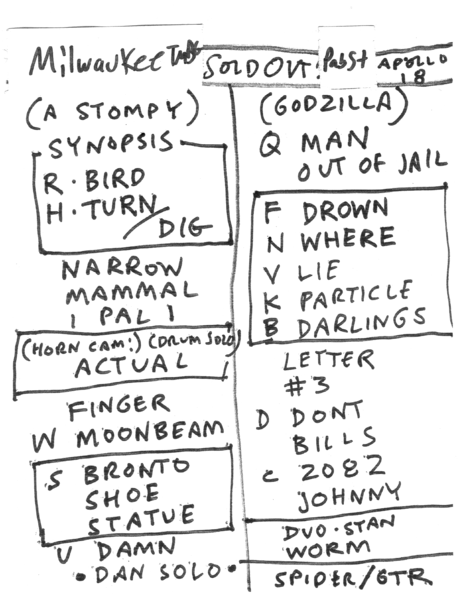 Milwaukee
SOLD OUT!
Pabst
APOLLO
18
(A STOMPY)
SYNOPSIS
R · BIRD
H · TURN
/ DIG
NARROW
MAMMAL
1 PAL 1
(HORN CAM:) (DRUM SOLO)
ACTUAL
FINGER
W MOONBEAM
S BRONTO
SHOE
STATUE
U DAMN
• DAN SOLO •
(GODZILLA)
Q MAN
OUT OF JAIL
F DROWN
N WHERE
V LIE
K PARTICLE
B DARLINGS
LETTER
#3
D DONT
BILLS
C 2082
JOHNNY
DUO · STAN
WORM
SPIDER/GTR